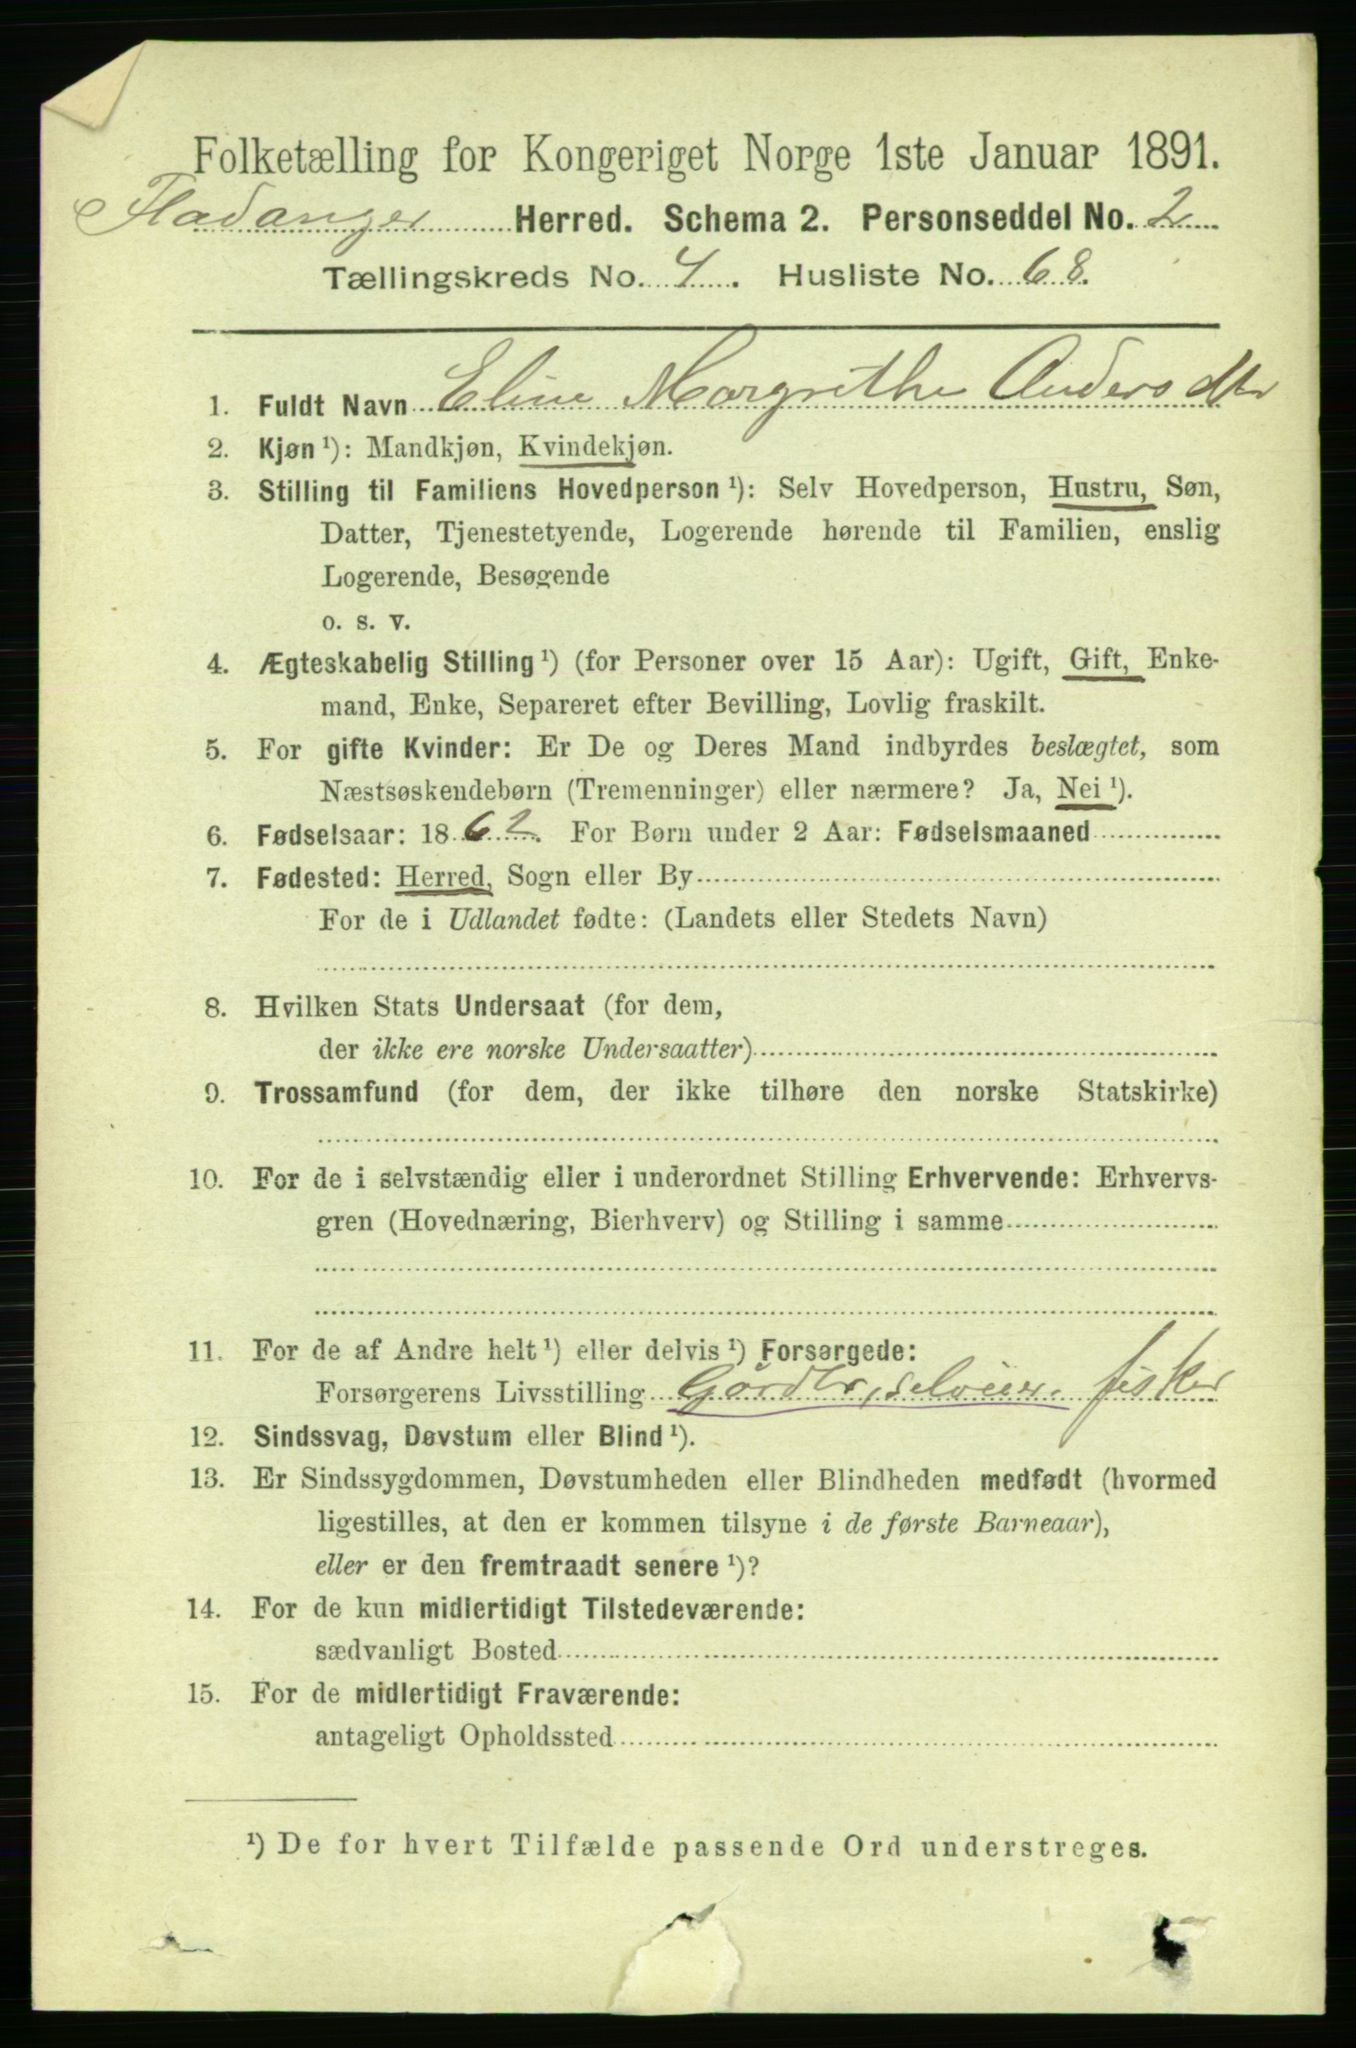 Folketælling for Kongeriget Norge 1ste Januar 1891.
Fladanger Herred. Schema 2. Personseddel No. 2
Tællingskreds No. 4. Husliste No. 68.
1. Fuldt Navn Eline Margrethe Andersdtr
2. Kjøn ¹): Mandkjøn, Kvindekjøn.
3. Stilling til Familiens Hovedperson ¹): Selv Hovedperson, Hustru, Søn,
Datter, Tjenestetyende, Logerende hørende til Familien, enslig
Logerende, Besøgende
o. s. v.
4. Ægteskabelig Stilling ¹) (for Personer over 15 Aar): Ugift, Gift, Enke-
mand, Enke, Separeret efter Bevilling, Lovlig fraskilt.
5. For gifte Kvinder: Er De og Deres Mand indbyrdes beslægtet, som
Næstsøskendebørn (Tremenninger) eller nærmere? Ja, Nei ¹).
6. Fødselsaar: 1862. For Børn under 2 Aar: Fødselsmaaned
7. Fødested: Herred, Sogn eller By
For de i Udlandet fødte: (Landets eller Stedets Navn)
8. Hvilken Stats Undersaat (for dem,
der ikke ere norske Undersaatter)
9. Trossamfund (for dem, der ikke tilhøre den norske Statskirke)
10. For de i selvstændig eller i underordnet Stilling Erhvervende: Erhvervs-
gren (Hovednæring, Bierhverv) og Stilling i samme
11. For de af Andre helt ¹) eller delvis ¹) Forsørgede:
Forsørgerens Livsstilling Gårdbr, selveier, fisker
12. Sindssvag, Døvstum eller Blind ¹).
13. Er Sindssygdommen, Døvstumheden eller Blindheden medfødt (hvormed
ligestilles, at den er kommen tilsyne i de første Barneaar),
eller er den fremtraadt senere ¹)?
14. For de kun midlertidigt Tilstedeværende:
sædvanligt Bosted
15. For de midlertidigt Fraværende:
antageligt Opholdssted
¹) De for hvert Tilfælde passende Ord understreges.